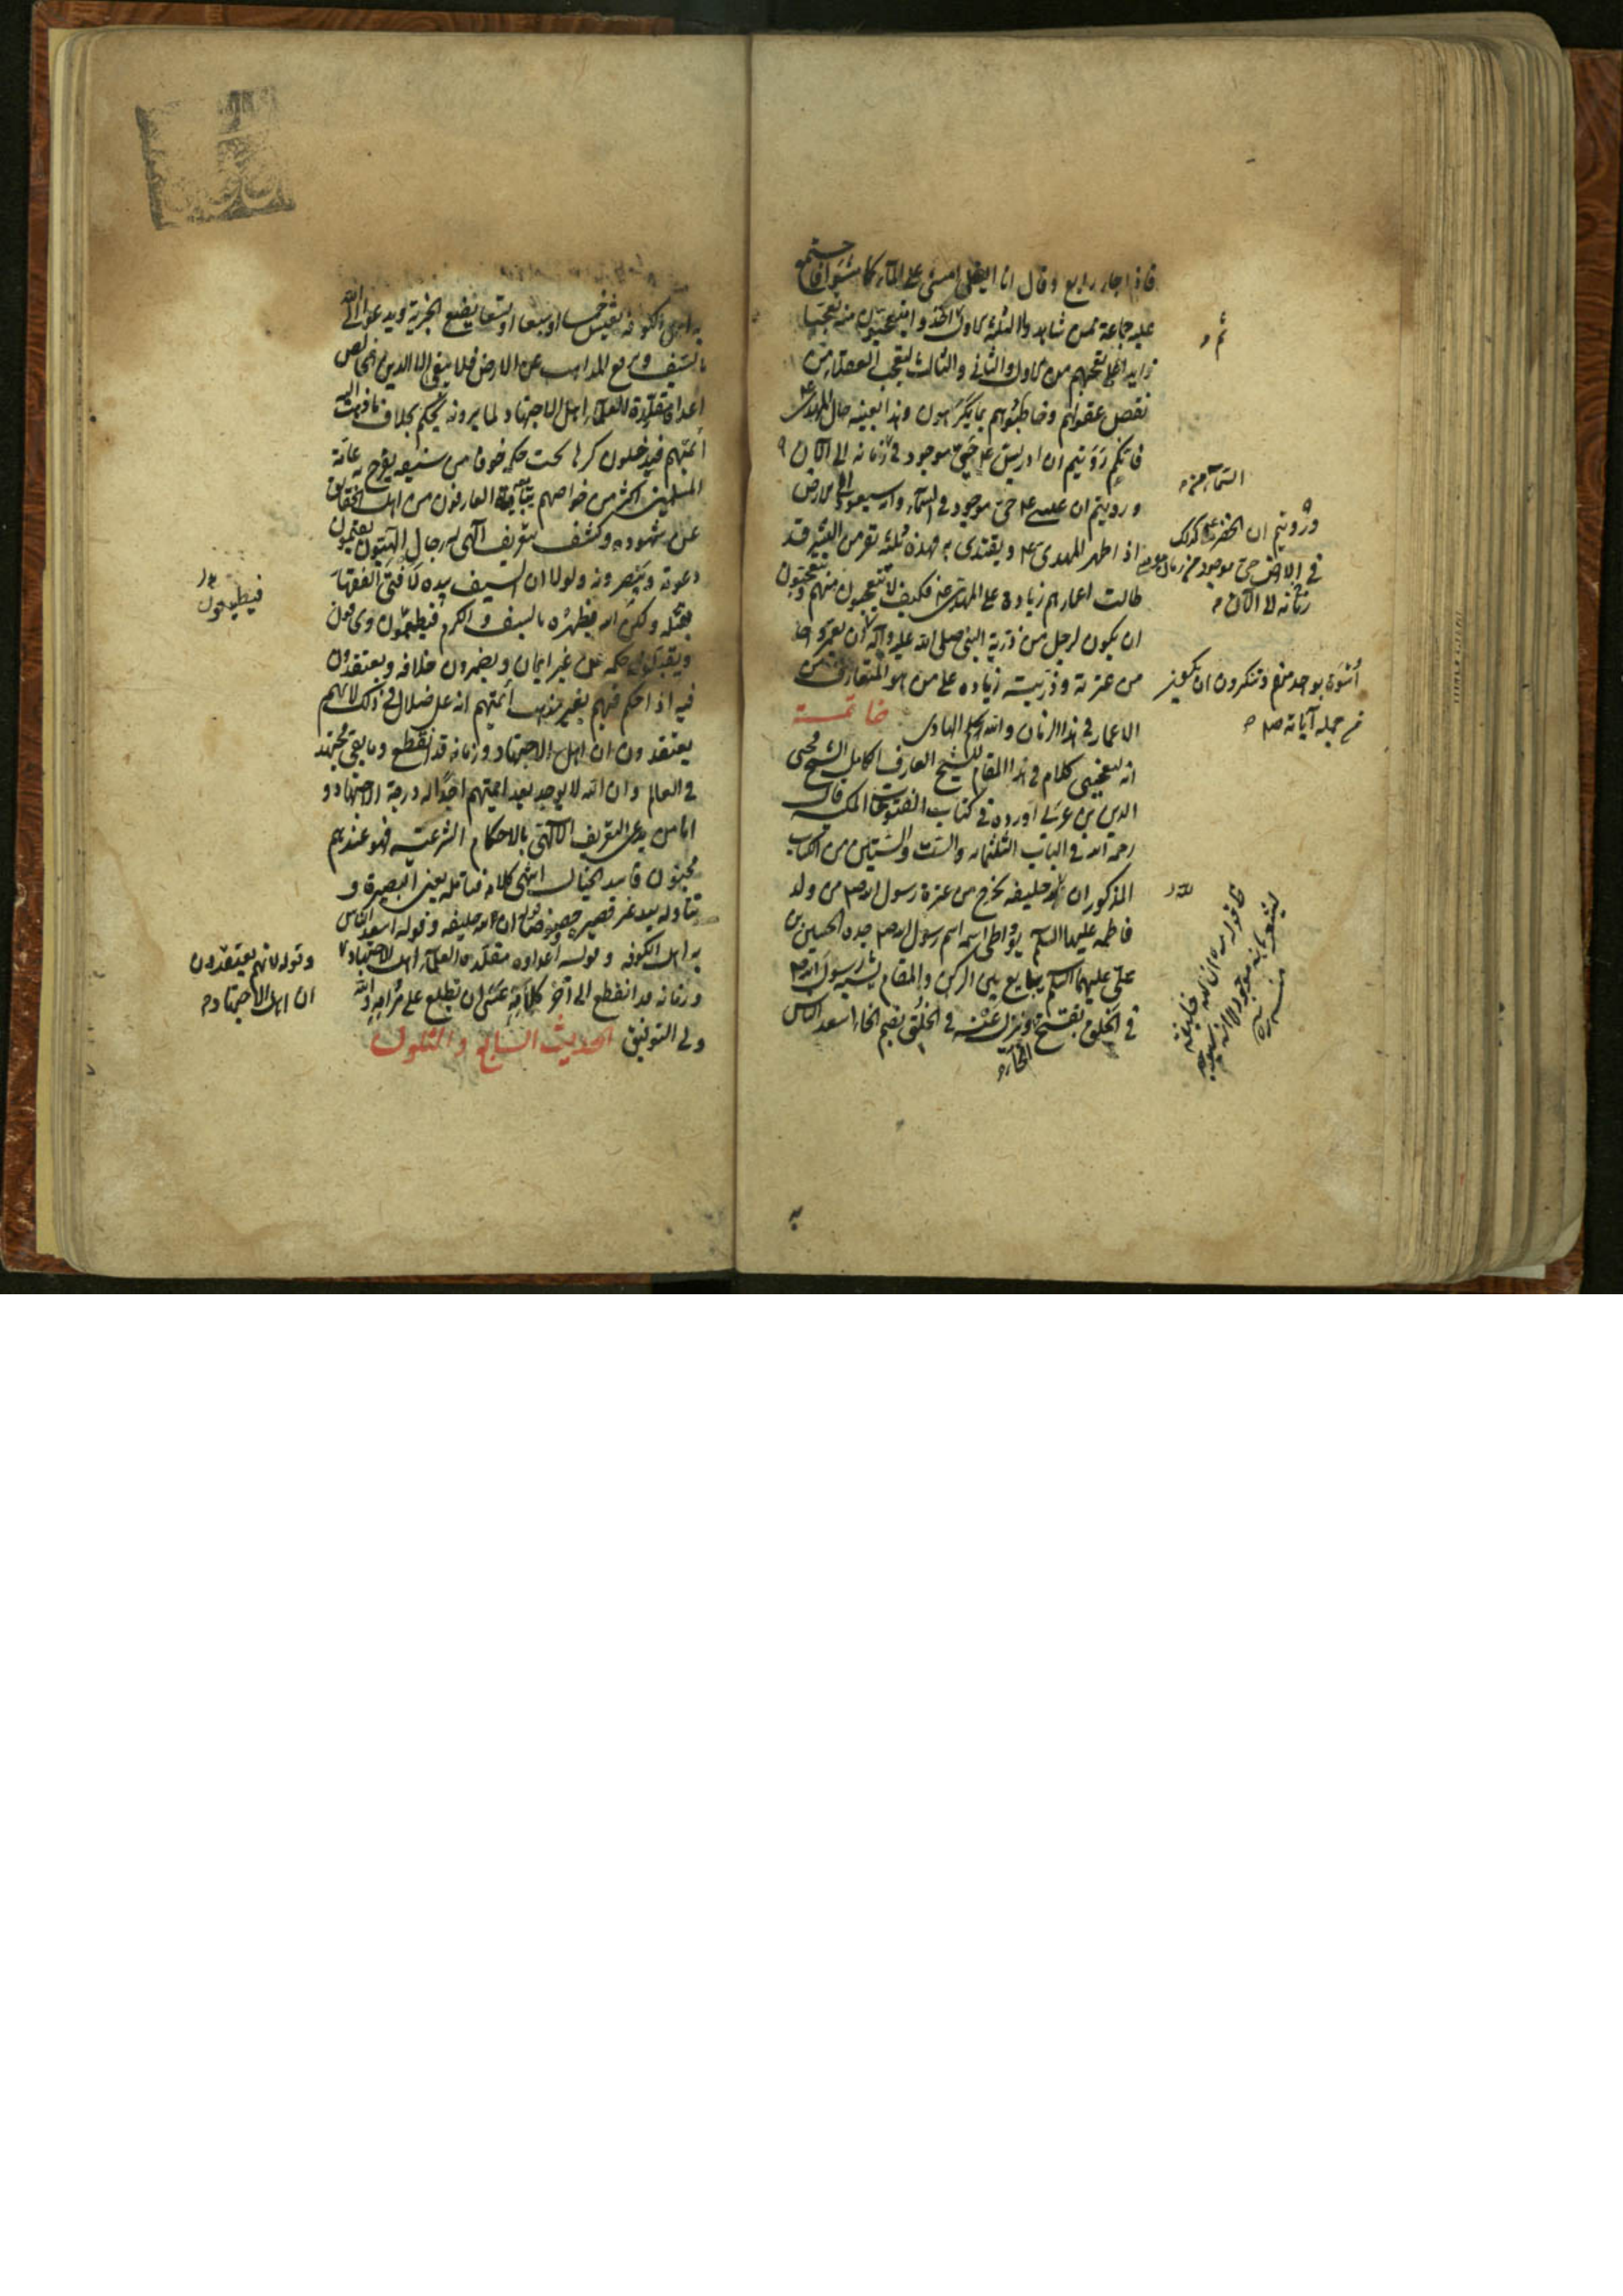 فاذا جاء رابع وقال انا ايضا امشي على الماء كما مشوا فاجتمع
عليه جماعة ممن شاهدوا الثلثة الاول اخذوا يتعجبون منه تعجبا
زايدا على تعجبهم من الاول والثاني والثالث لتعجب العقلاء من
نقص عقولهم وخاطبوهم بما يكرهون وهذا بعينه حال المهدي ع
فانكم رويتم ان ادريس ع حي موجود في زمانه الى الان
ورويتم ان عيسى ع حي موجود في السماء وانه سيعود الى الارض
اذا ظهر المهدي ع ويقتدى به فهذه ثلثة نفر من البشر قد
طالت اعمارهم زيادة على المهدي ع فكيف لا تتعجبون منهم وتتعجبون
ان يكون لرجل من ذرية النبي صلى الله عليه وآله
من عترته وذريته زيادة على من هو المتعارف من
الاعمار في هذا الزمان والله الهادي خاتمة
انه ليعجبني كلام في هذا المقام للشيخ العارف الكامل الشيخ محيى
الدين بن عربي اورده في كتاب الفتوحات المكية قال
رحمه الله في الباب الثلثمائة والست والستين من الكتاب
المذكور ان لله خليفة يخرج من عترة رسول الله ص من ولد
فاطمة عليها السلم يواطي اسمه اسم رسول الله ص جده الحسين بن
علي عليهما السلم يبايع بين الركن والمقام يشبه رسول الله ص
في الخلق بفتح الخاء وينزل عنه في الخلق بضم الخاء اسعد الناس
السماء
ورويتم ان الخضر ع كذلك
في الارض حي موجود من زمان موسى
زمانه الى الان
اسوة بواحد منهم وتنكرون ان يكون
من جملة آياته ص
لله
في قوله ره ان لله خليفة
به
به اهل الكوفة يعيش خمسا او سبعا او تسعا يضع الجزية ويدعو الى الله
بالسيف ويرفع المذاهب عن الارض فلا يبقى الا الدين الخالص
اعداؤه مقلدة العلماء اهل الاجتهاد لما يرونه يحكم بخلاف ما ذهب اليه
أئمتهم فيدخلون كرها تحت حكمه خوفا من سيفه يفرح به عامة
المسلمين اكثر من خواصهم يبايعه العارفون من اهل الحقايق
عن شهود وكشف بتعريف الهي له رجال الهيون يقيمون
دعوته وينصرونه ولولا ان السيف بيده لافتى الفقهاء
بقتله ولكن الله يظهره بالسيف والكرم فيطمعون ويخافون
ويقبلون حكمه من غير ايمان ويضمرون خلافه ويعتقدون
فيه اذا حكم فيهم بغير مذهب أئمتهم انه على ضلال في ذلك لانهم
يعتقدون ان اهل الاجتهاد وزمانه قد انقطع وما بقي مجتهد
في العالم وان الله لا يوجد بعد ائمتهم احدا له درجة الاجتهاد و
اما من يدعى التعريف الالهي بالاحكام الشرعية فهو عندهم
مجنون فاسد الخيال انتهى كلامه فتأمله بعين البصيرة و
تناوله بيد غير قصيرة خصوصا قوله ان لله خليفة وقوله اسعد الناس
به اهل الكوفة وقوله اعداؤه مقلدة العلماء اهل الاجتهاد
وزمانه قد انقطع الى آخر كلامه عسى ان تطلع على مرامه والله
ولي التوفيق الحديث السابع والثلثون
فيطيعون
وقوله لانهم يعتقدون
ان اهل الاجتهاد